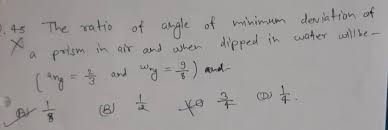 Q. 45 The ratio of angle of minimum deviation of
a prism in air and when dipped in water will be-
(ang = 2/3 and wng = 9/8) and-
(A) 1/8 (B) 1/2 (C) 3/4 (D) 1/4.